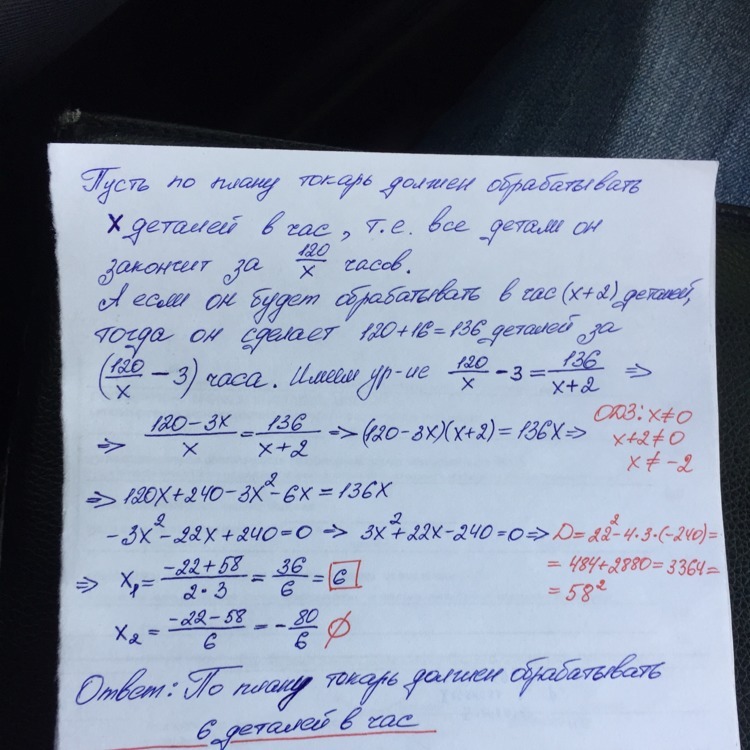 Пусть по плану токарь должен обрабатывать
x деталей в час, т.е. все детали он
закончит за 120/x часов.
А если он будет обрабатывать в час (x+2) деталей,
тогда он сделает 120+16=136 деталей за
(120/x − 3) часа. Имеем ур-ие 120/x − 3 = 136/(x+2) ⇒
⇒ (120−3x)/x = 136/(x+2) ⇒ (120−3x)(x+2) = 136x ⇒
ОДЗ: x≠0
x+2≠0
x≠−2
⇒ 120x+240−3x²−6x = 136x
−3x²−22x+240=0 ⇒ 3x²+22x−240=0 ⇒ D=22²−4·3·(−240)=
= 484+2880=3364=
= 58²
⇒ x₁ = (−22+58)/(2·3) = 36/6 = 6
x₂ = (−22−58)/6 = −80/6 ∅
Ответ: По плану токарь должен обрабатывать
6 деталей в час